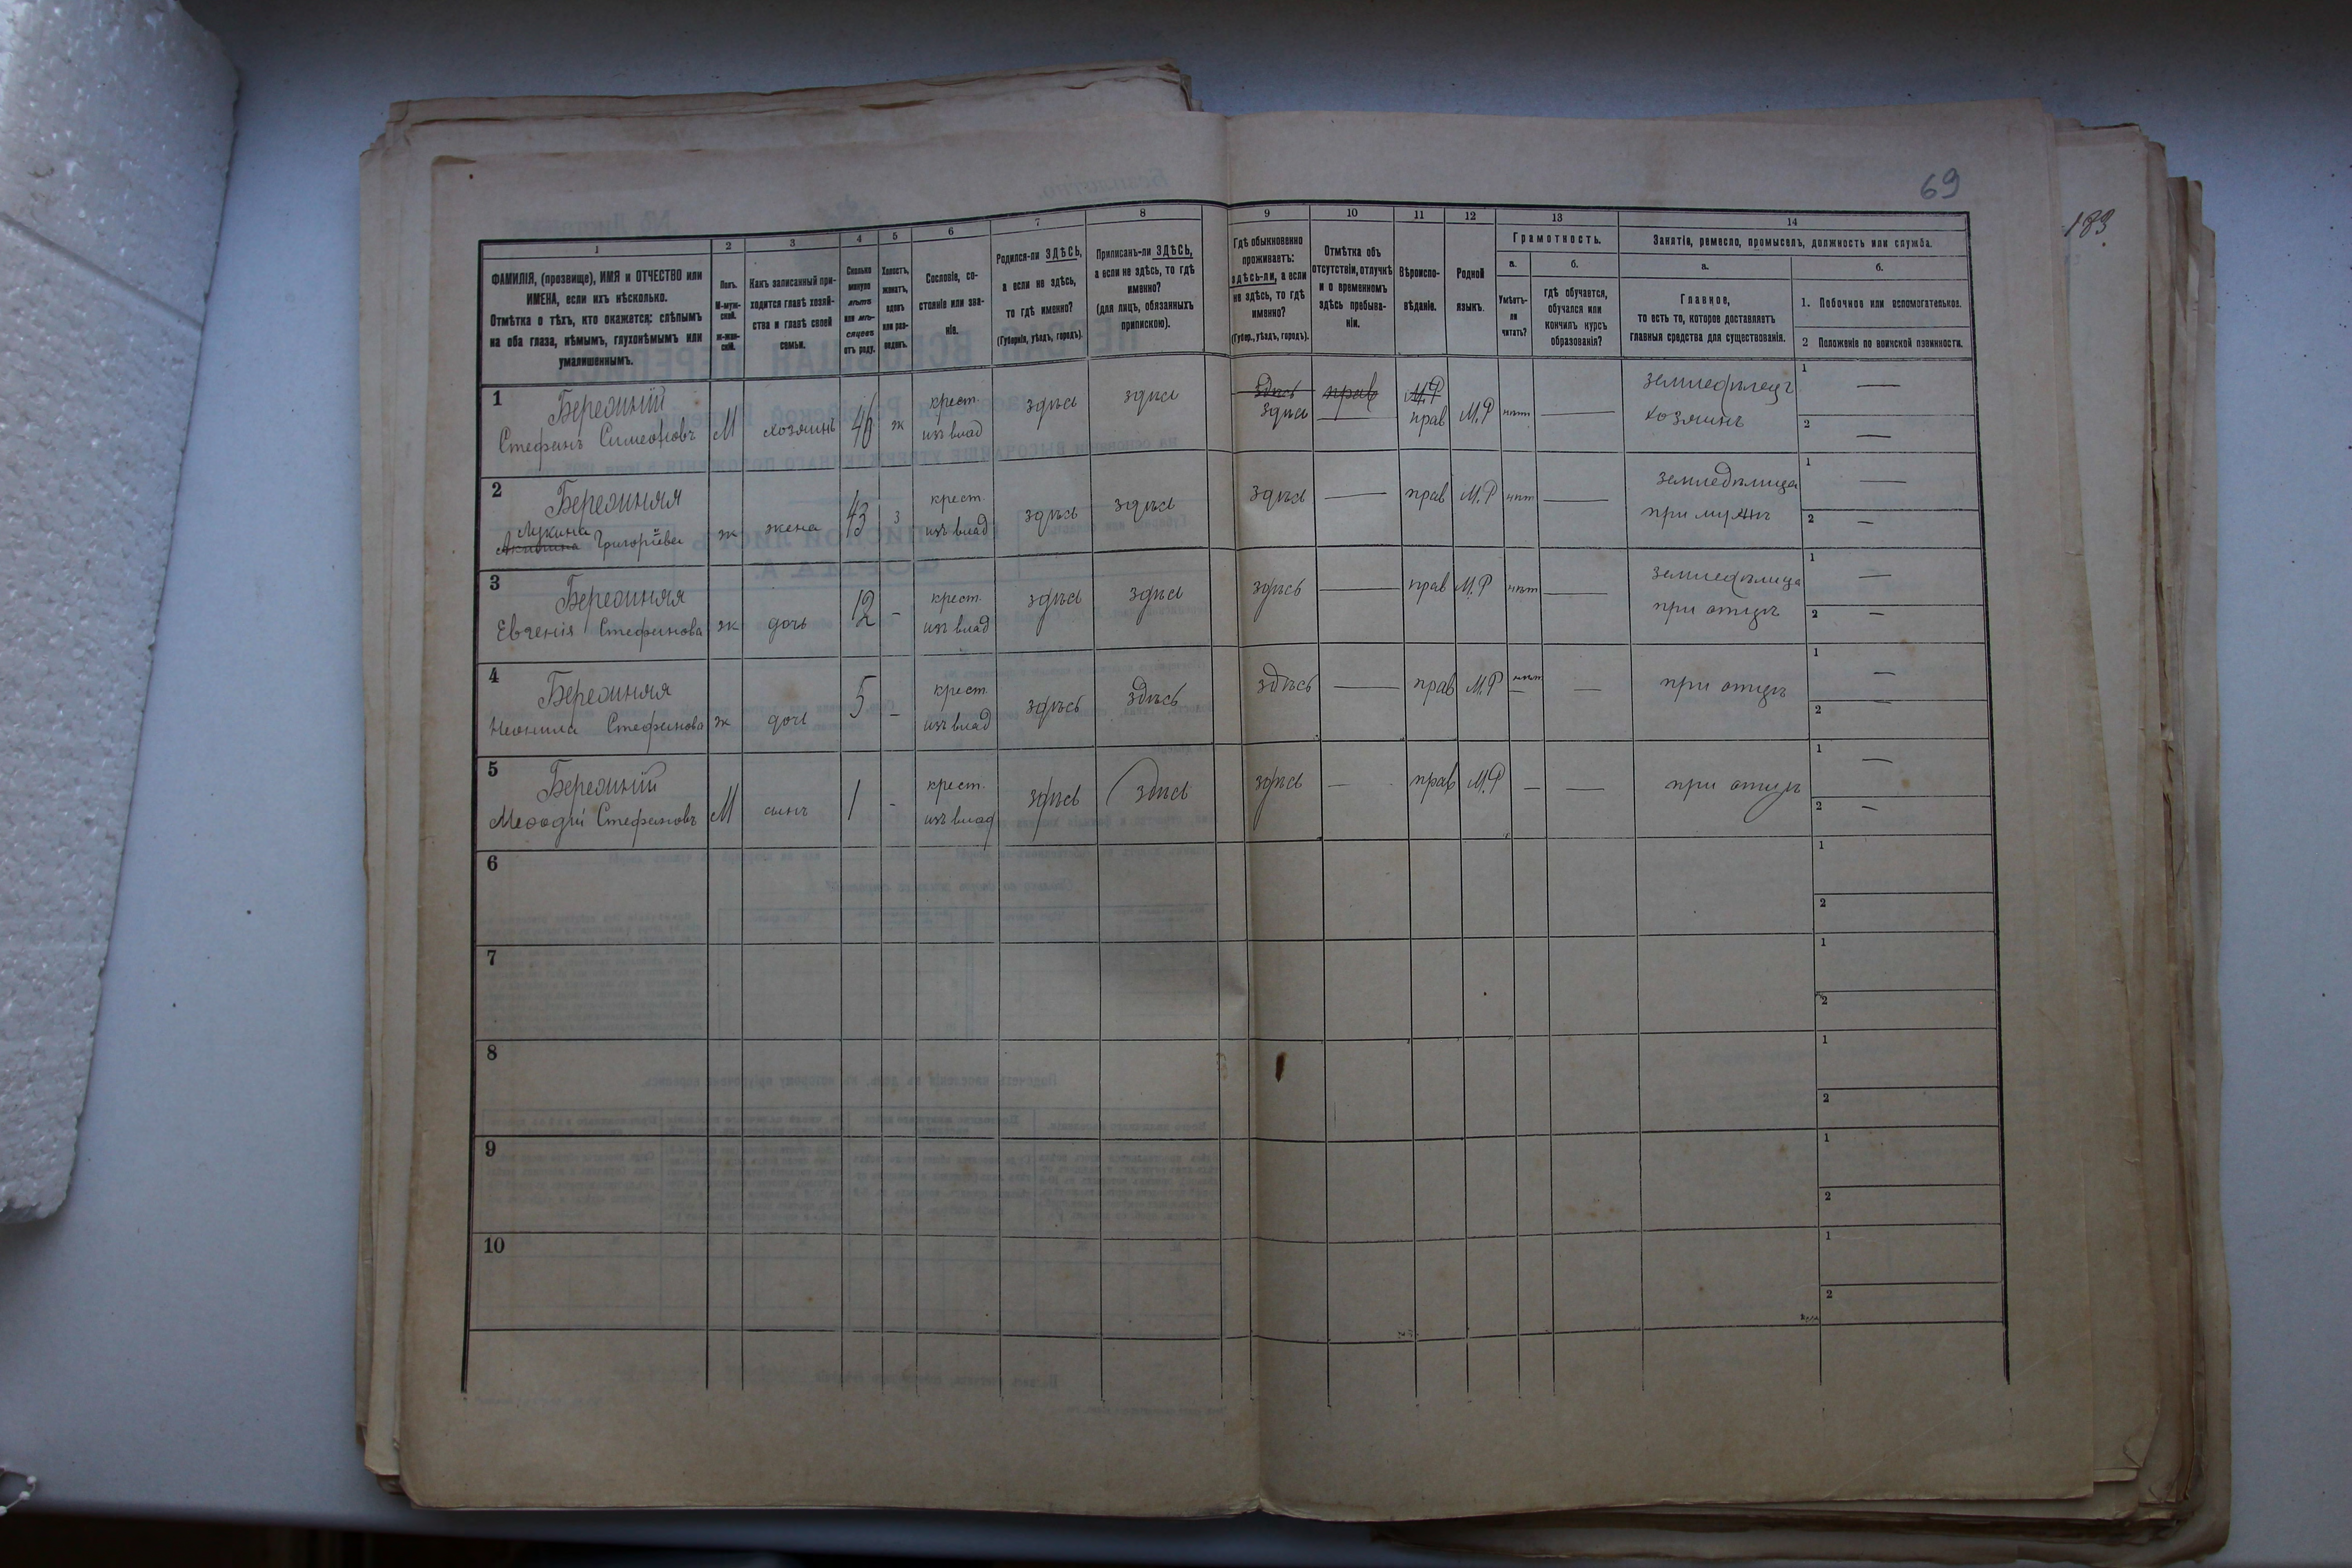 69
183
1
2
3
4
5
6
7
8
9
10
11
12
13
14
ФАМИЛІЯ, (прозвище), ИМЯ и ОТЧЕСТВО или
ИМЕНА, если ихъ нѣсколько.
Отмѣтка о тѣхъ, кто окажется: слѣпымъ
на оба глаза, нѣмымъ, глухонѣмымъ или
умалишеннымъ.
Полъ.
М-муж-
ской.
ж-жен-
скій.
Какъ записанный при-
ходится главѣ хозяй-
ства и главѣ своей
семьи.
Сколько
минуло
лѣтъ
или мѣ-
сяцевъ
отъ роду.
Холостъ,
женатъ,
вдовъ
или раз-
веденъ.
Сословіе, со-
стояніе или зва-
ніе.
Родился-ли ЗДѢСЬ,
а если не здѣсь,
то гдѣ именно?
(Губернія, уѣздъ, городъ).
Приписанъ-ли ЗДѢСЬ,
а если не здѣсь, то гдѣ
именно?
(для лицъ, обязанныхъ
припискою).
Гдѣ обыкновенно
проживаетъ:
здѣсь-ли, а если
не здѣсь, то гдѣ
именно?
(Губер., уѣздъ, городъ).
Отмѣтка объ
отсутствіи, отлучкѣ
и о временномъ
здѣсь пребыва-
ніи.
Вѣроиспо-
вѣданіе.
Родной
языкъ.
Грамотность.
а.
Умѣетъ-
ли
читать?
б.
гдѣ обучается,
обучался или
кончилъ курсъ
образованія?
Занятіе, ремесло, промыселъ, должность или служба.
а.
Главное,
то есть то, которое доставляетъ
главныя средства для существованія.
б.
1. Побочное или вспомогательное.
2 Положеніе по воинской повинности.
1
Бережній
Стефанъ Симеоновъ М хозяинъ 46 ж крест. изъ влад здѣсь здѣсь
здѣсь прав М.Р
здѣсь — прав М.Р нѣт — земледѣлецъ хозяинъ 1 — 2 —
2
Бережняя
Лукина
Григоріева ж жена 43 з крест. изъ влад здѣсь здѣсь здѣсь — прав М.Р нѣт — земледѣлица при мужѣ 1 — 2 —
3
Бережняя
Евгенія Стефанова ж дочь 12 - крест. изъ влад здѣсь здѣсь здѣсь — прав М.Р нѣт — земледѣлица при отцѣ 1 — 2 —
4
Бережняя
Неонила Стефанова ж дочь 5 - крест. изъ влад здѣсь здѣсь здѣсь — прав М.Р нѣт — при отцѣ 1 — 2 —
5
Бережній
Меѳодій Стефановъ М сынъ 1 - крест. изъ влад здѣсь здѣсь здѣсь — прав М.Р — — при отцѣ 1 — 2 —
6
1
2
7
1
2
8
1
2
9
1
2
10
1
2